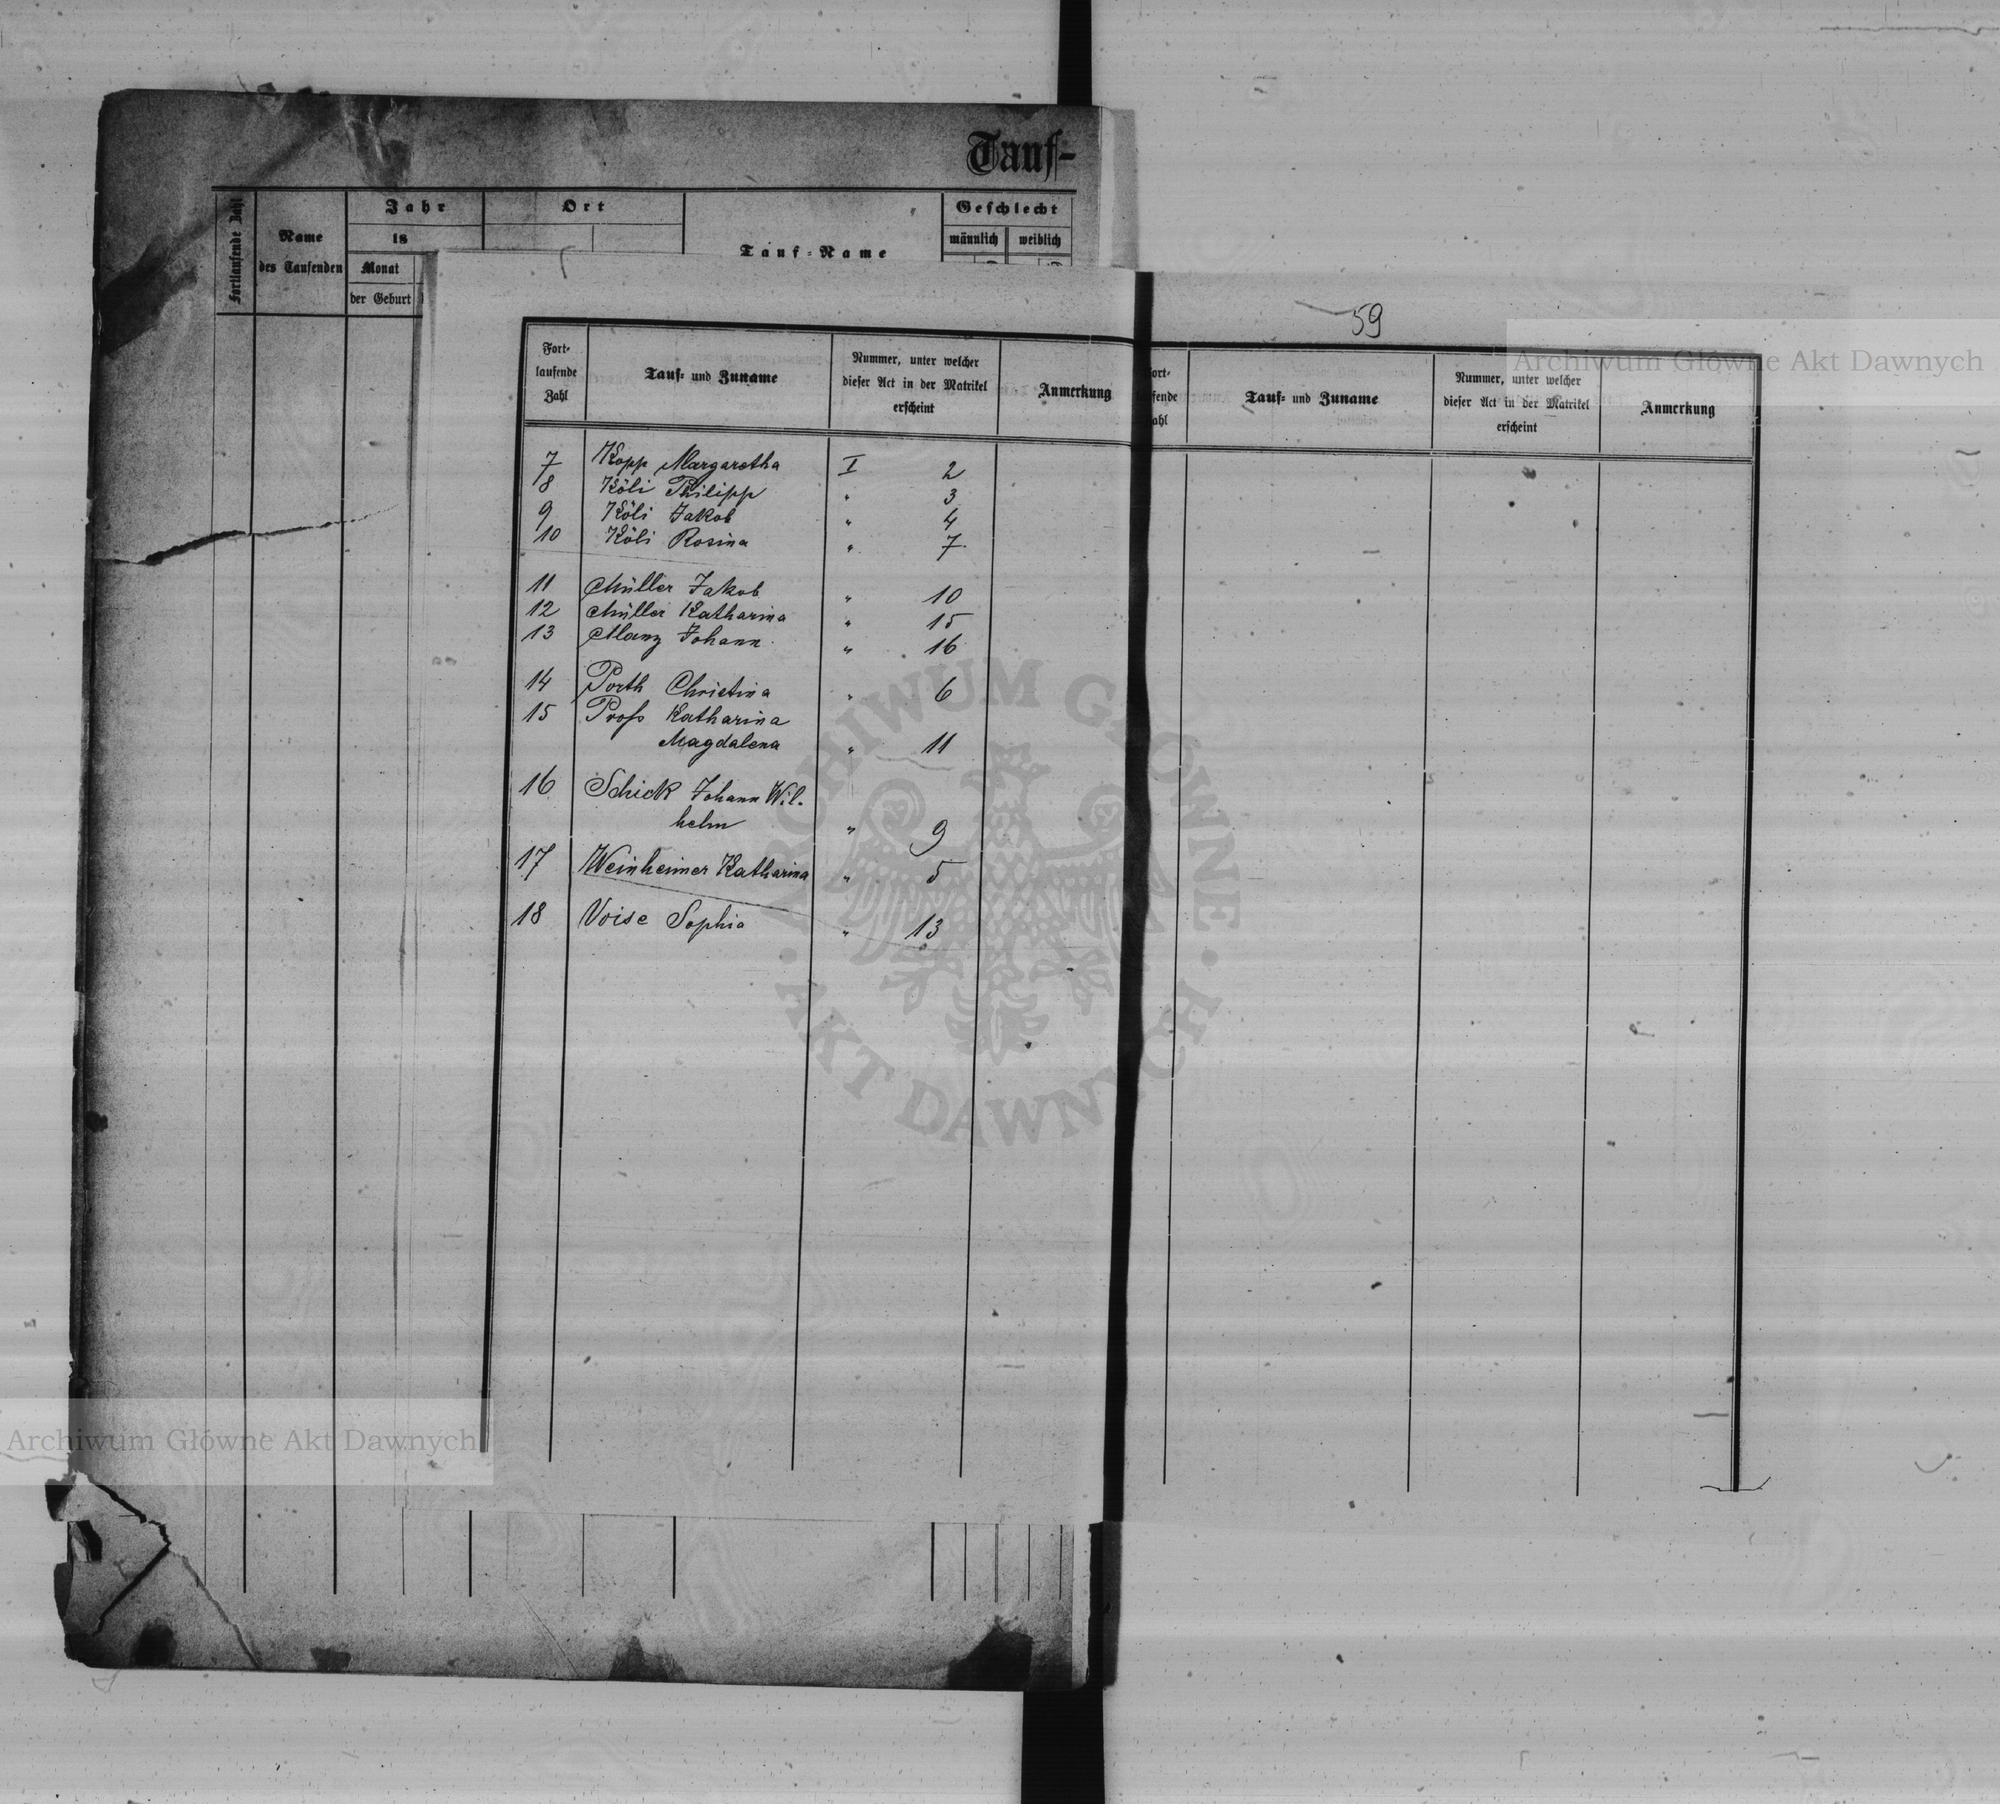 Tauf-
Fortlaufende Zahl
Name
des Taufenden
Jahr
18
Monat
der Geburt
Ort
Tauf-Name
Geschlecht
männlich weiblich
59
Fort-
laufende
Zahl
Tauf- und Zuname
Nummer, unter welcher
dieser Act in der Matrikel
erscheint
Anmerkung
ort-
fende
ahl
Tauf- und Zuname
Nummer, unter welcher
dieser Act in der Matrikel
erscheint
Anmerkung
7 Kopp Margaretha I 2
8 Köli Philipp " 3
9 Köli Jakob " 4
10 Köli Rosina " 7
11 Müller Jakob " 10
12 Müller Katharina " 15
13 Manz Johann " 16
14 Porth Christina " 6
15 Profs Katharina
Magdalena " 11
16 Schick Johann Wil-
helm " 9
17 Weinheimer Katharina " 5
18 Voise Sophia " 13
Archiwum Główne Akt Dawnych
ARCHIWUM GŁÓWNE · AKT DAWNYCH ·
Archiwum Główne Akt Dawnych